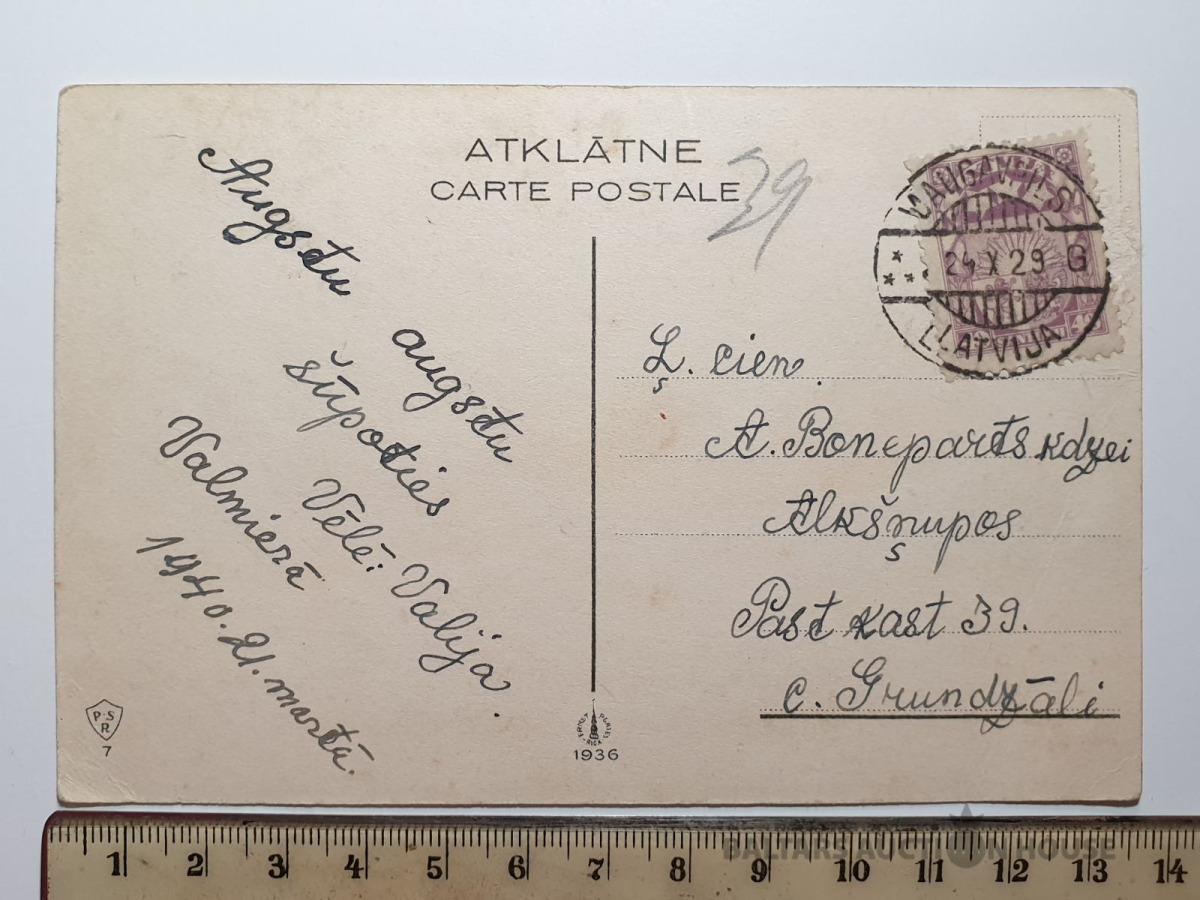 ATKLĀTNE
CARTE POSTALE
29
DAUGAVPILS
24 X 29 G
LATVIJA
40
Augstu
augstu
šūpoties
Vēlē: Valija.
Valmierā
1940. 21. martā.
Ļ. cien.
A. Boneparts kdzei
Alkšņupos
Past kast 39.
c. Grundzāli
P.S.R
7
ERNESTS PLATES RIGA
1936
1 2 3 4 5 6 7 8 9 10 11 12 13 14
BALTARS AUCTION HOUSE